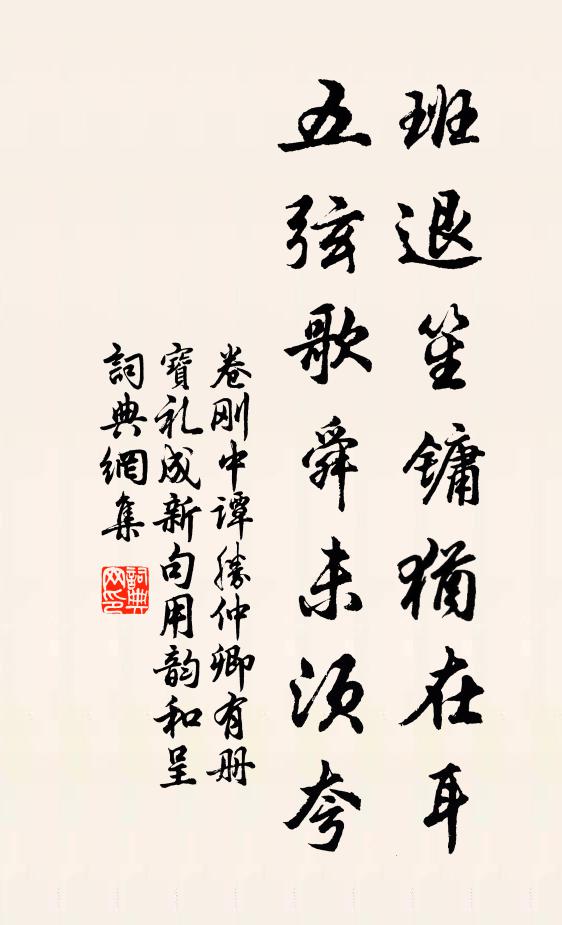 班退笙镛犹在耳
五弦歌舜未须夸
卷刚中谭胜仲卿有册
寶礼成新句用韵和呈
詞典網集
詞典网印